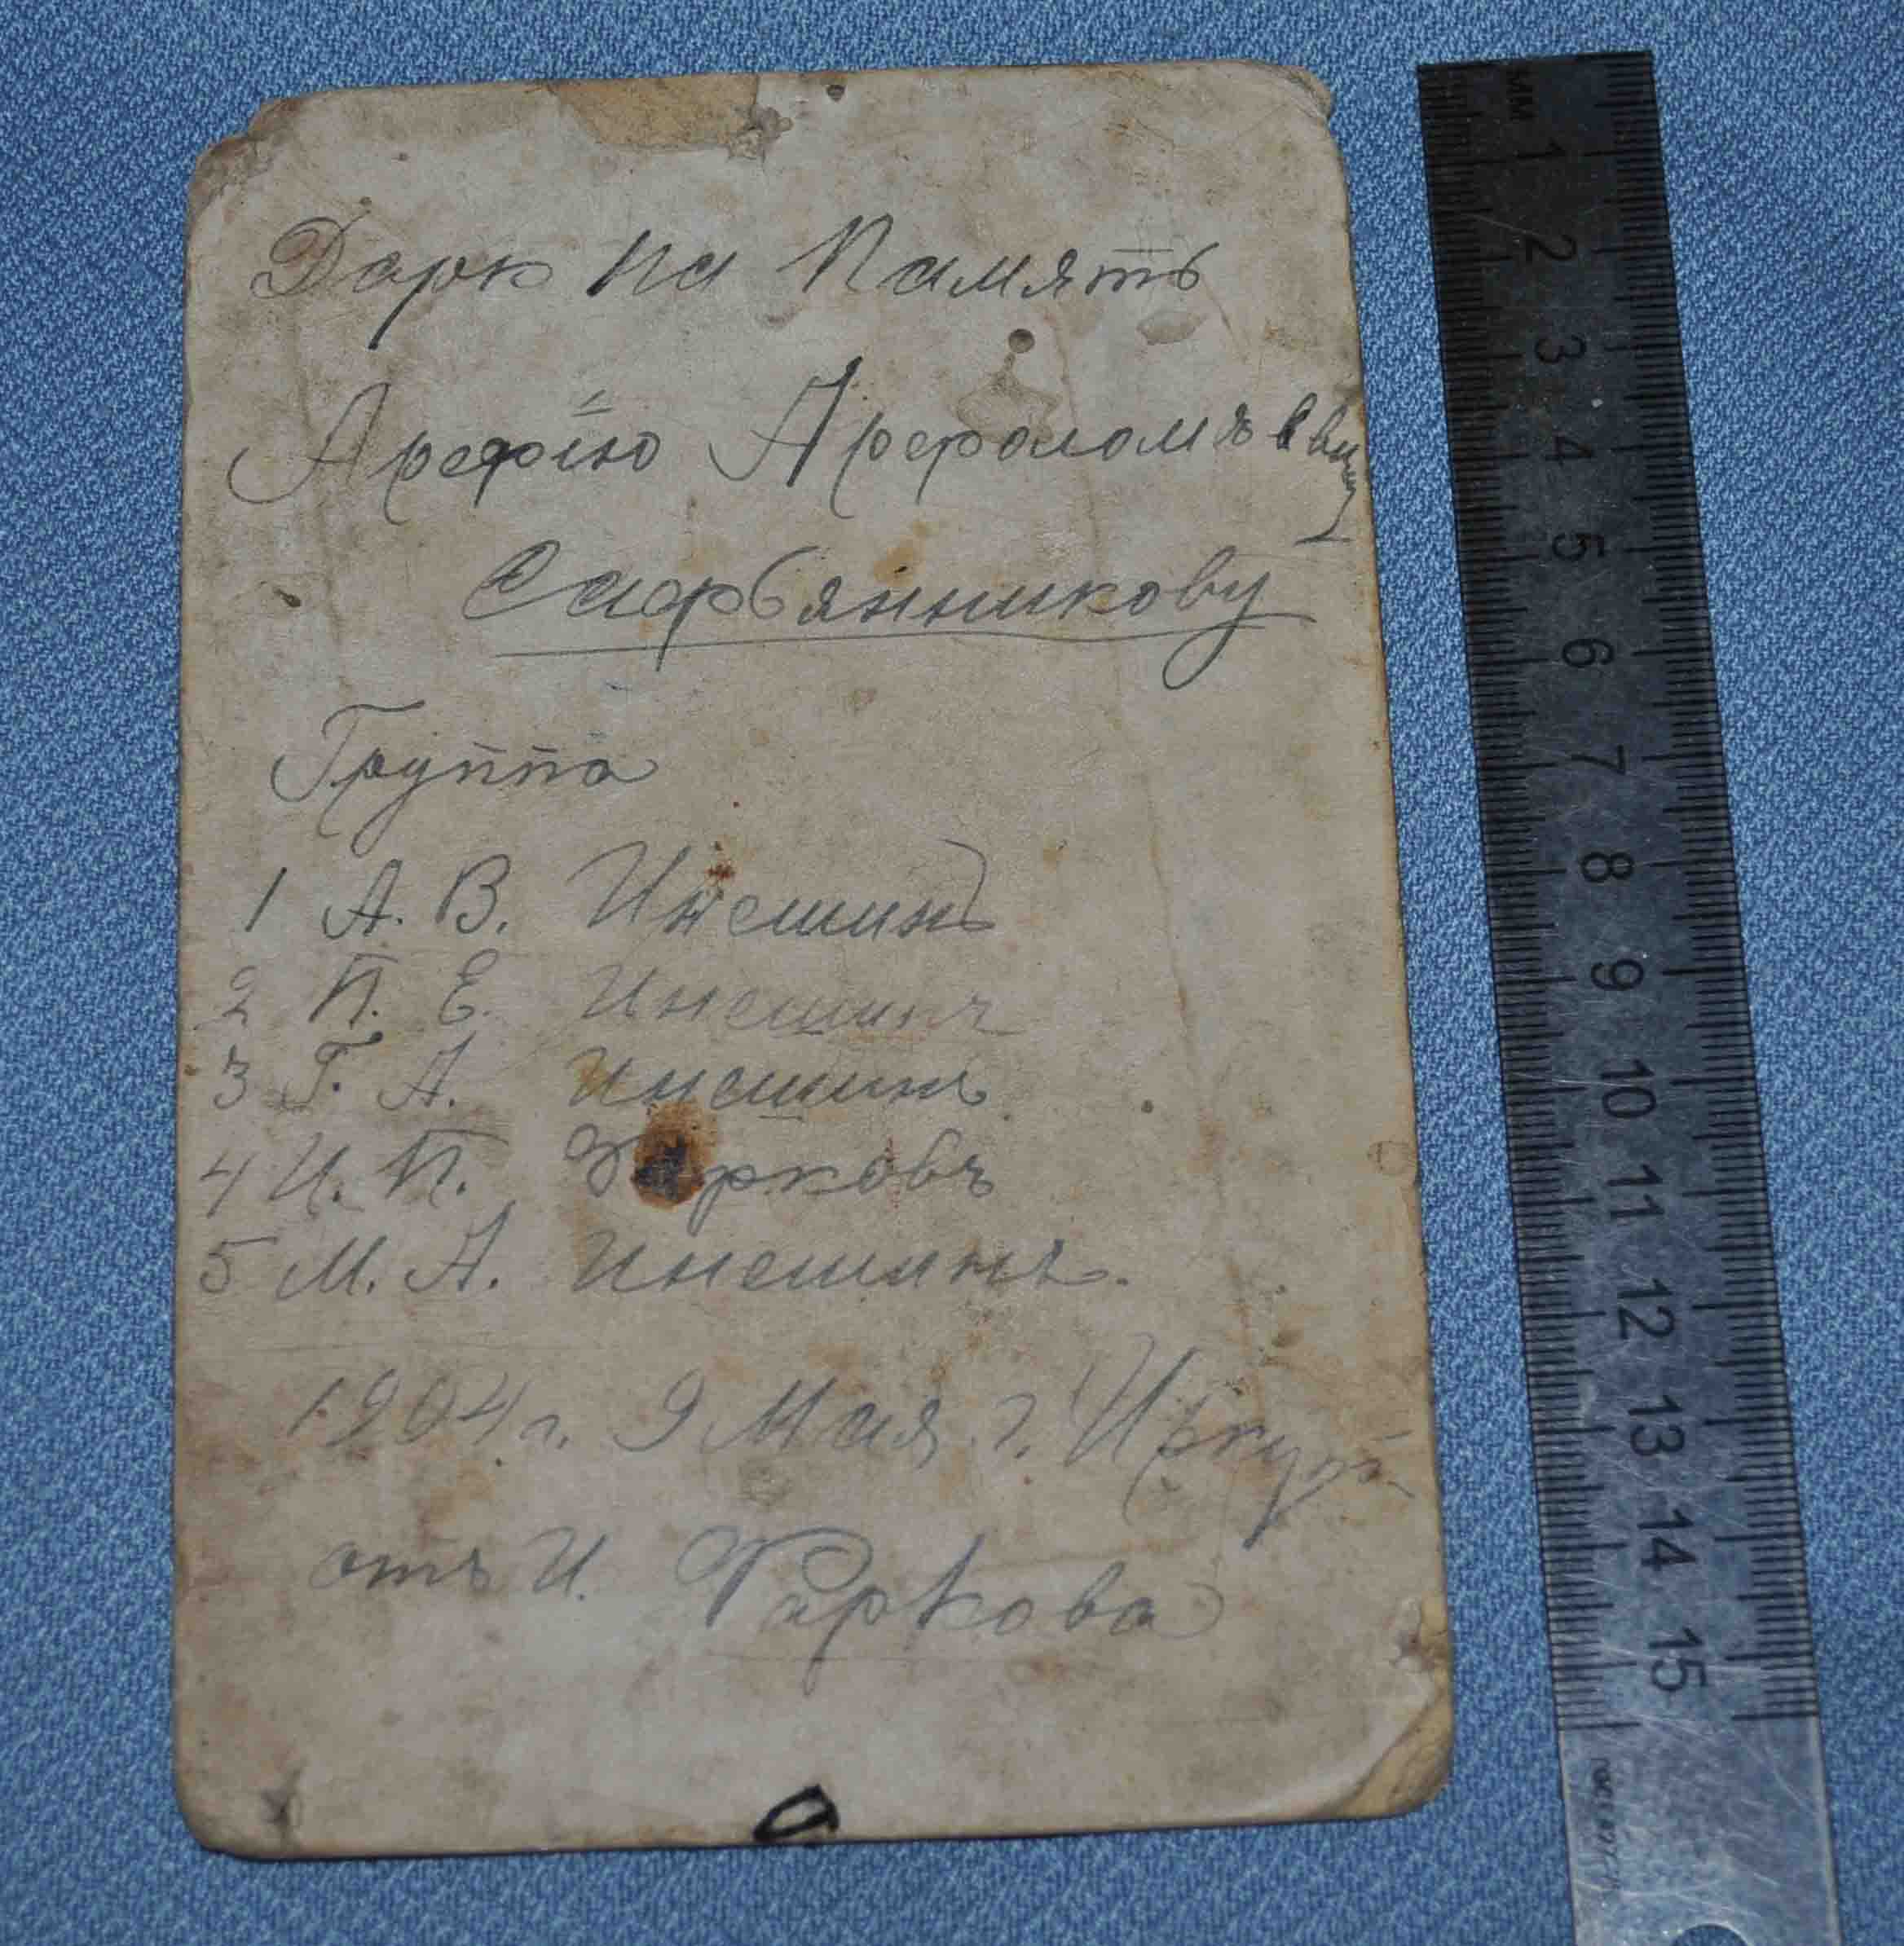 Дарю на Память
Арефію
Сафьянникову
Группа
1 А. В. Инешинъ
2 П. Е. Инешинъ
3 Г. А. Инешинъ
4 И. П. Фарковъ
5 М. А. Инешинъ.
1904 г. 9 Мая г. Иркут
отъ И. Фаркова
мм 1 2 3 4 5 6 7 8 9 10 11 12 13 14 15